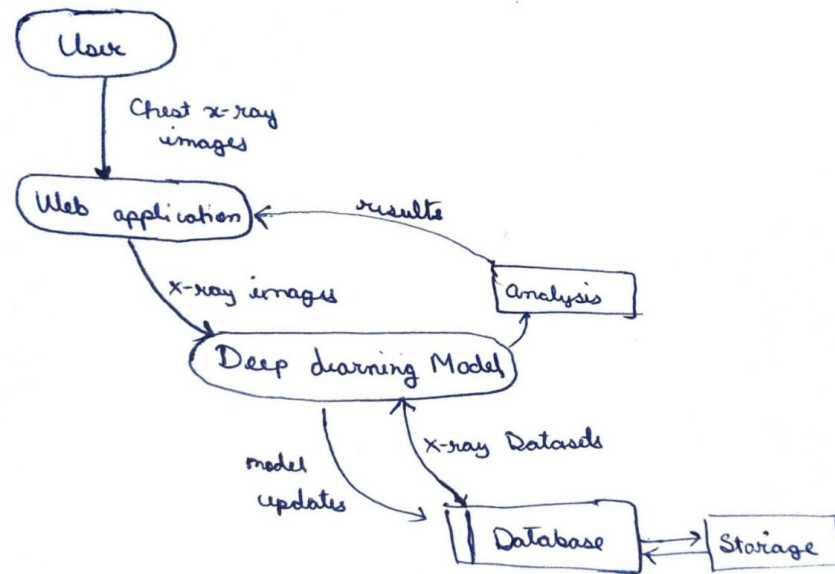 User
Chest x-ray
images
Web application
results
x-ray images
Analysis
Deep Learning Model
x-ray Datasets
model
updates
Database
Storage